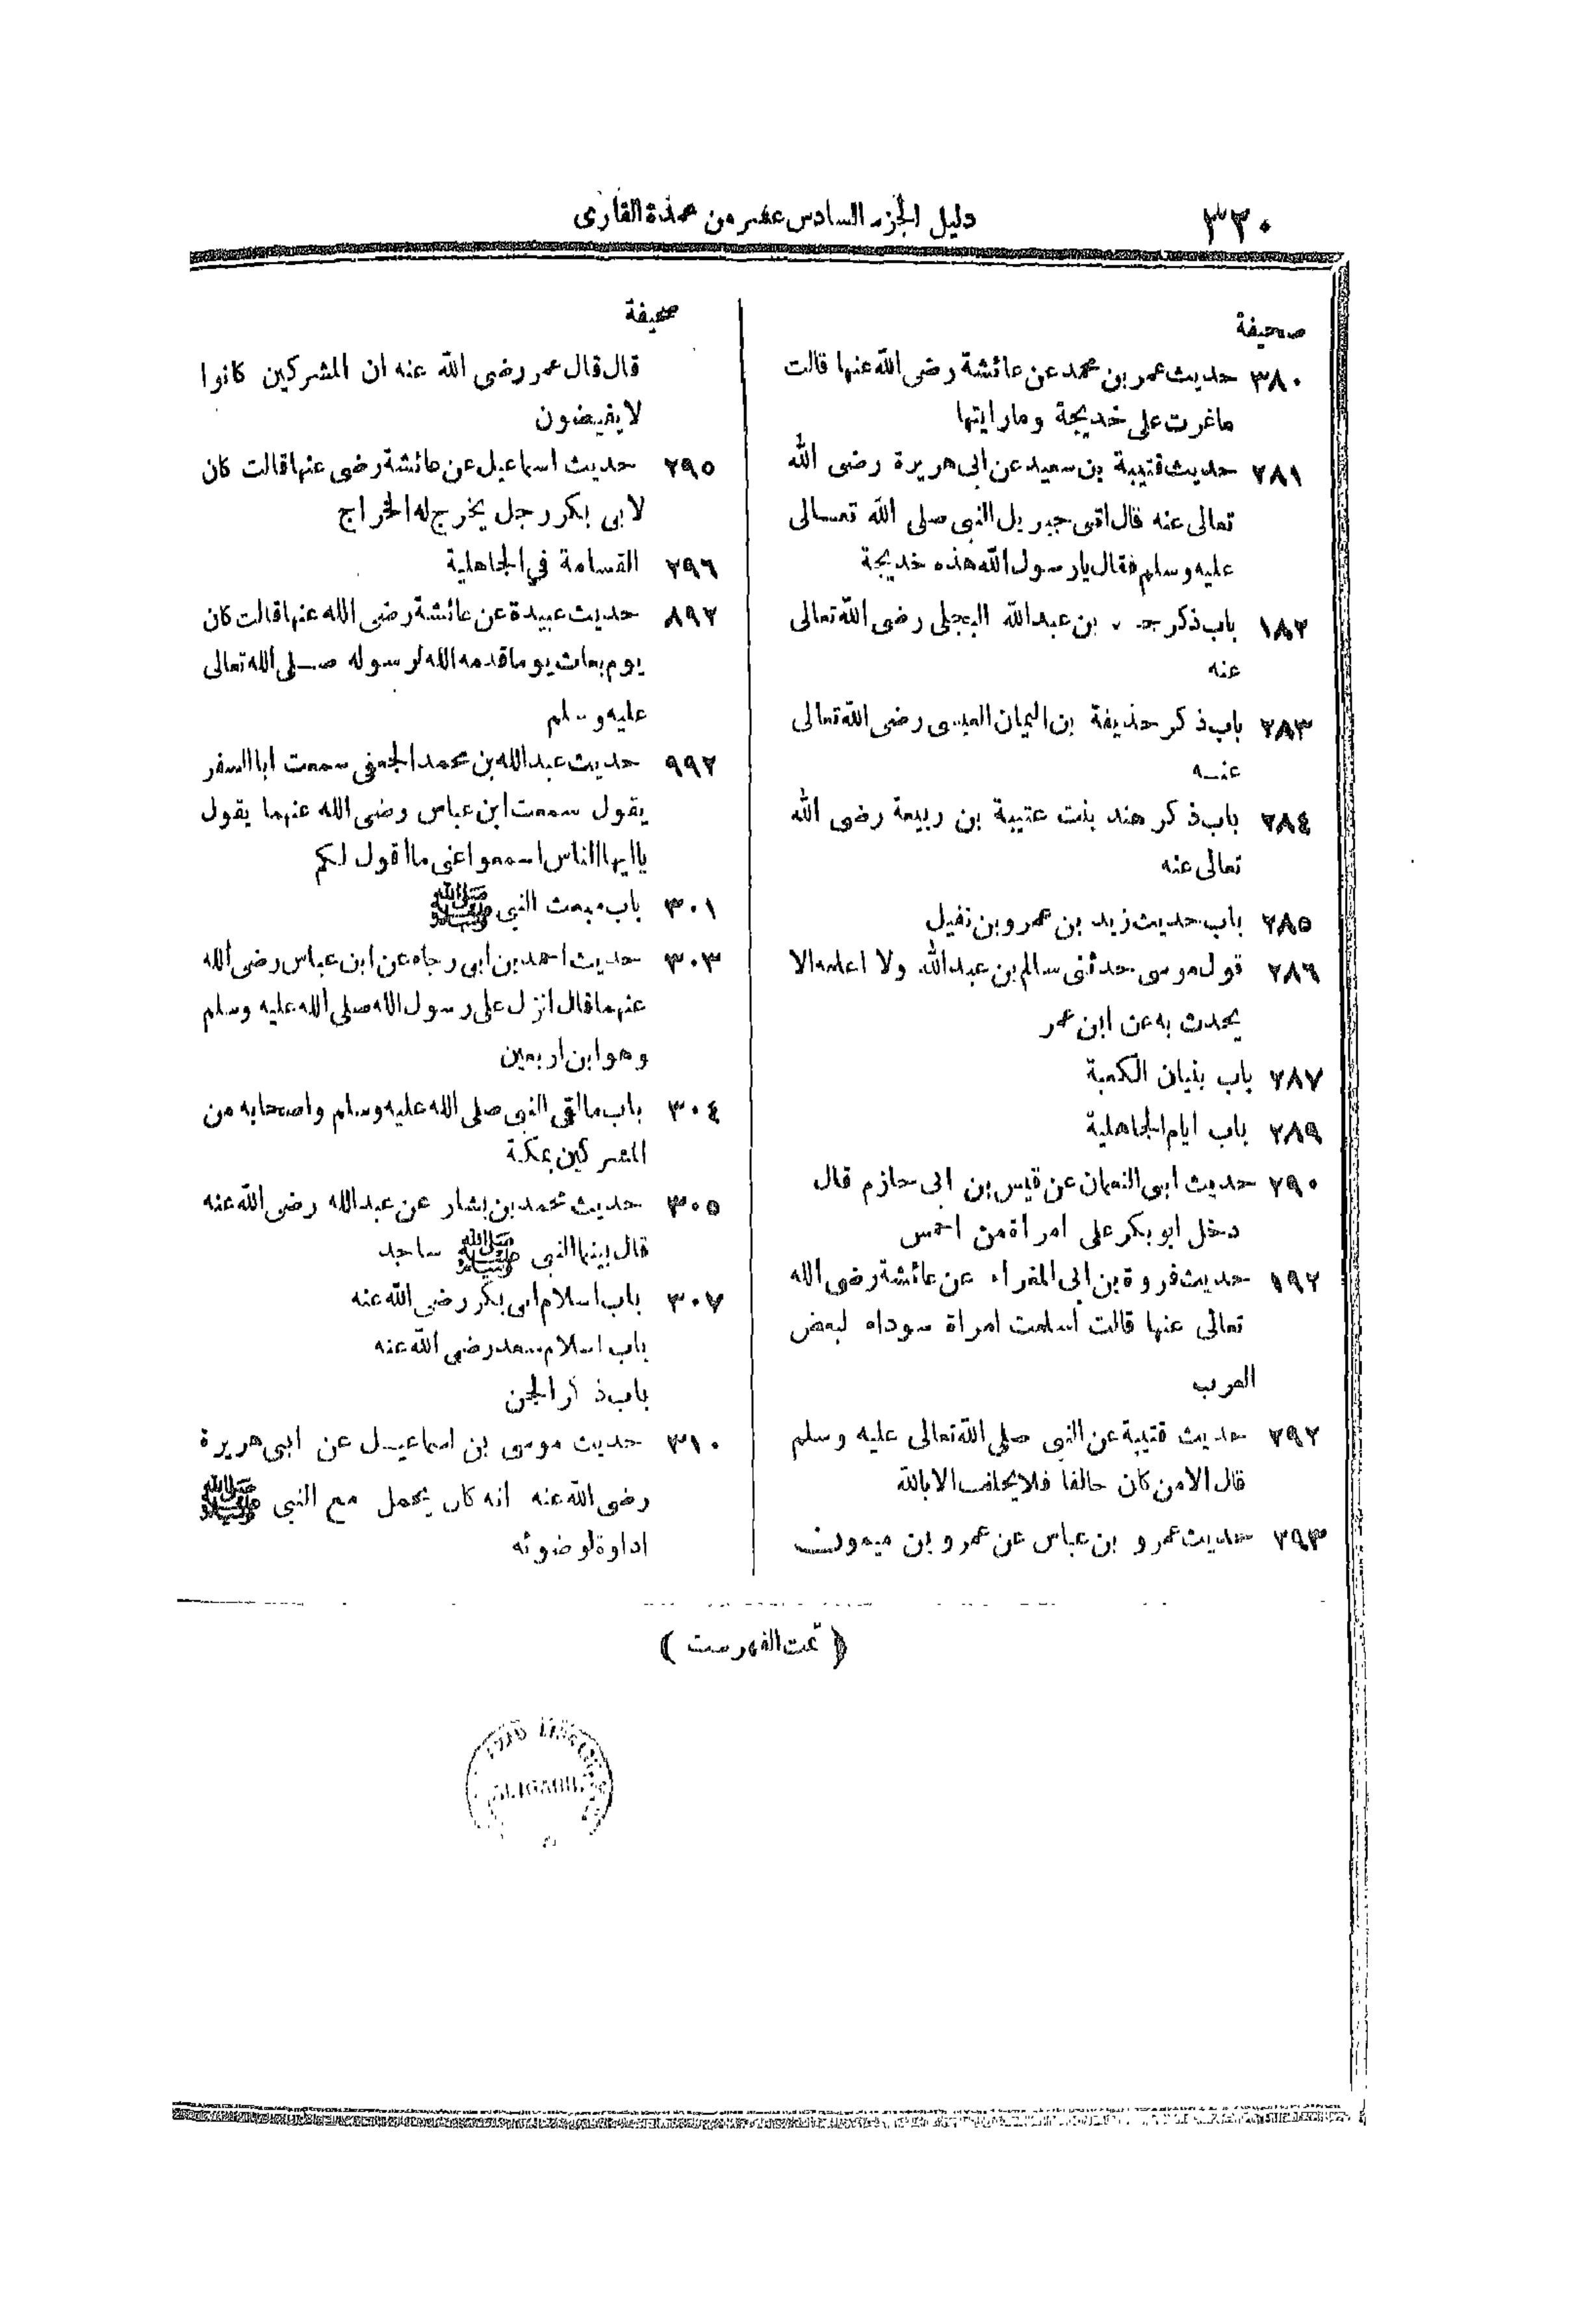 ٣٢٠
دليل الجزء السادس عشر من عمدة القارى
صحيفة
٣٨٠ حديث عمر بن محمد عن عائشة رضى الله عنها قالت
ماغرت على خديجة ومارايتها
٢٨١ حديث قتيبة بن سعيد عن ابى هريرة رضى الله
تعالى عنه قال اتى جبريل النبى صلى الله تعالى
عليه وسلم فقال يارسول الله هذه خديجة
١٨٢ باب ذكر بن عبدالله البجلى رضى الله تعالى
عنه
٢٨٣ باب ذكر حذيفة بن اليمان العبسى رضى الله تعالى
عنه
٢٨٤ باب ذكر هند بنت عتيبة بن ربيعة رضى الله
تعالى عنه
٢٨٥ باب حديث زيد بن عمرو بن نفيل
٢٨٦ قول موسى حدثنى سالم بن عبدالله ولا اعلمه الا
يحدث به عن ابن عمر
٢٨٧ باب بنيان الكعبة
٢٨٩ باب ايام الجاهلية
٢٩٠ حديث ابى النعمان عن قيس بن ابى حازم قال
دخل ابو بكر على امراة من احمس
١٩٢ حديث فروة بن ابى المغراء عن عائشة رضى الله
تعالى عنها قالت أسلمت امراة سوداء لبعض
العرب
٢٩٢ حديث قتيبة عن النبى صلى الله تعالى عليه وسلم
قال الا من كان حالفا فلا يحلف الا بالله
٢٩٣ حديث عمرو بن عباس عن عمرو بن ميمون
صحيفة
قال قال عمر رضى الله عنه ان المشركين كانوا
لا يفيضون
٢٩٥ حديث اسماعيل عن عائشة رضى عنها قالت كان
لابى بكر رجل يخرج له الخراج
٢٩٦ القسامة في الجاهلية
٨٩٢ حديث عبيدة عن عائشة رضى الله عنها قالت كان
يوم بعاث يوما قدمه الله لرسوله صلى الله تعالى
عليه وسلم
٩٩٢ حديث عبدالله بن محمد الجعفى سمعت ابا السفر
يقول سمعت ابن عباس رضى الله عنهما يقول
يا ايها الناس اسمعوا عنى ما اقول لكم
٣٠١ باب مبعث النبى ﷺ
٣٠٣ حديث احمد بن ابى رجاء عن ابن عباس رضى الله
عنهما قال انزل على رسول الله صلى الله عليه وسلم
وهو ابن اربعين
٣٠٤ باب مالقى النبى صلى الله عليه وسلم واصحابه من
المشركين بمكة
٣٠٥ حديث محمد بن بشار عن عبدالله رضى الله عنه
قال بينما النبى ﷺ ساجد
٣٠٧ باب اسلام ابى بكر رضى الله عنه
باب اسلام سعد رضى الله عنه
باب ذكر الجن
٣١٠ حديث موسى بن اسماعيل عن ابى هريرة
رضى الله عنه انه كان يحمل مع النبى ﷺ
اداوة لوضوئه
( تمت الفهرست )
ALIGARH